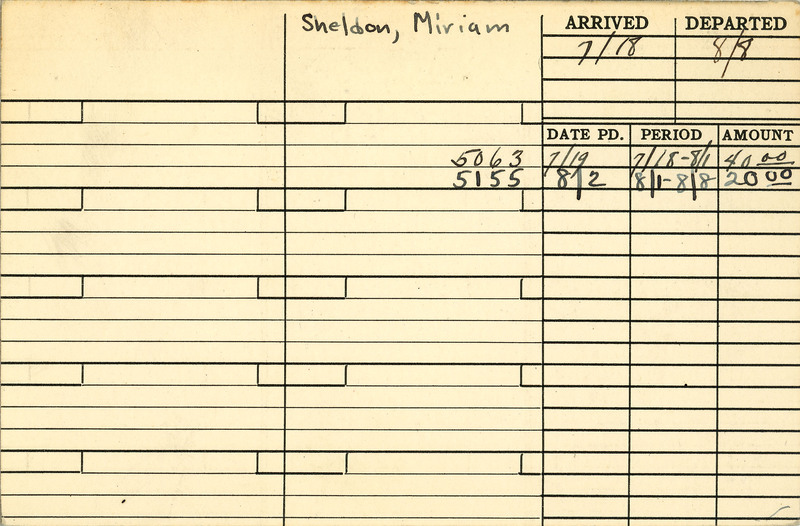 Sheldon, Miriam ARRIVED DEPARTED
7/18 8/8
DATE PD. PERIOD AMOUNT
5063 7/19 7/18-8/1 40 00
5155 8/2 8/1-8/8 20 00